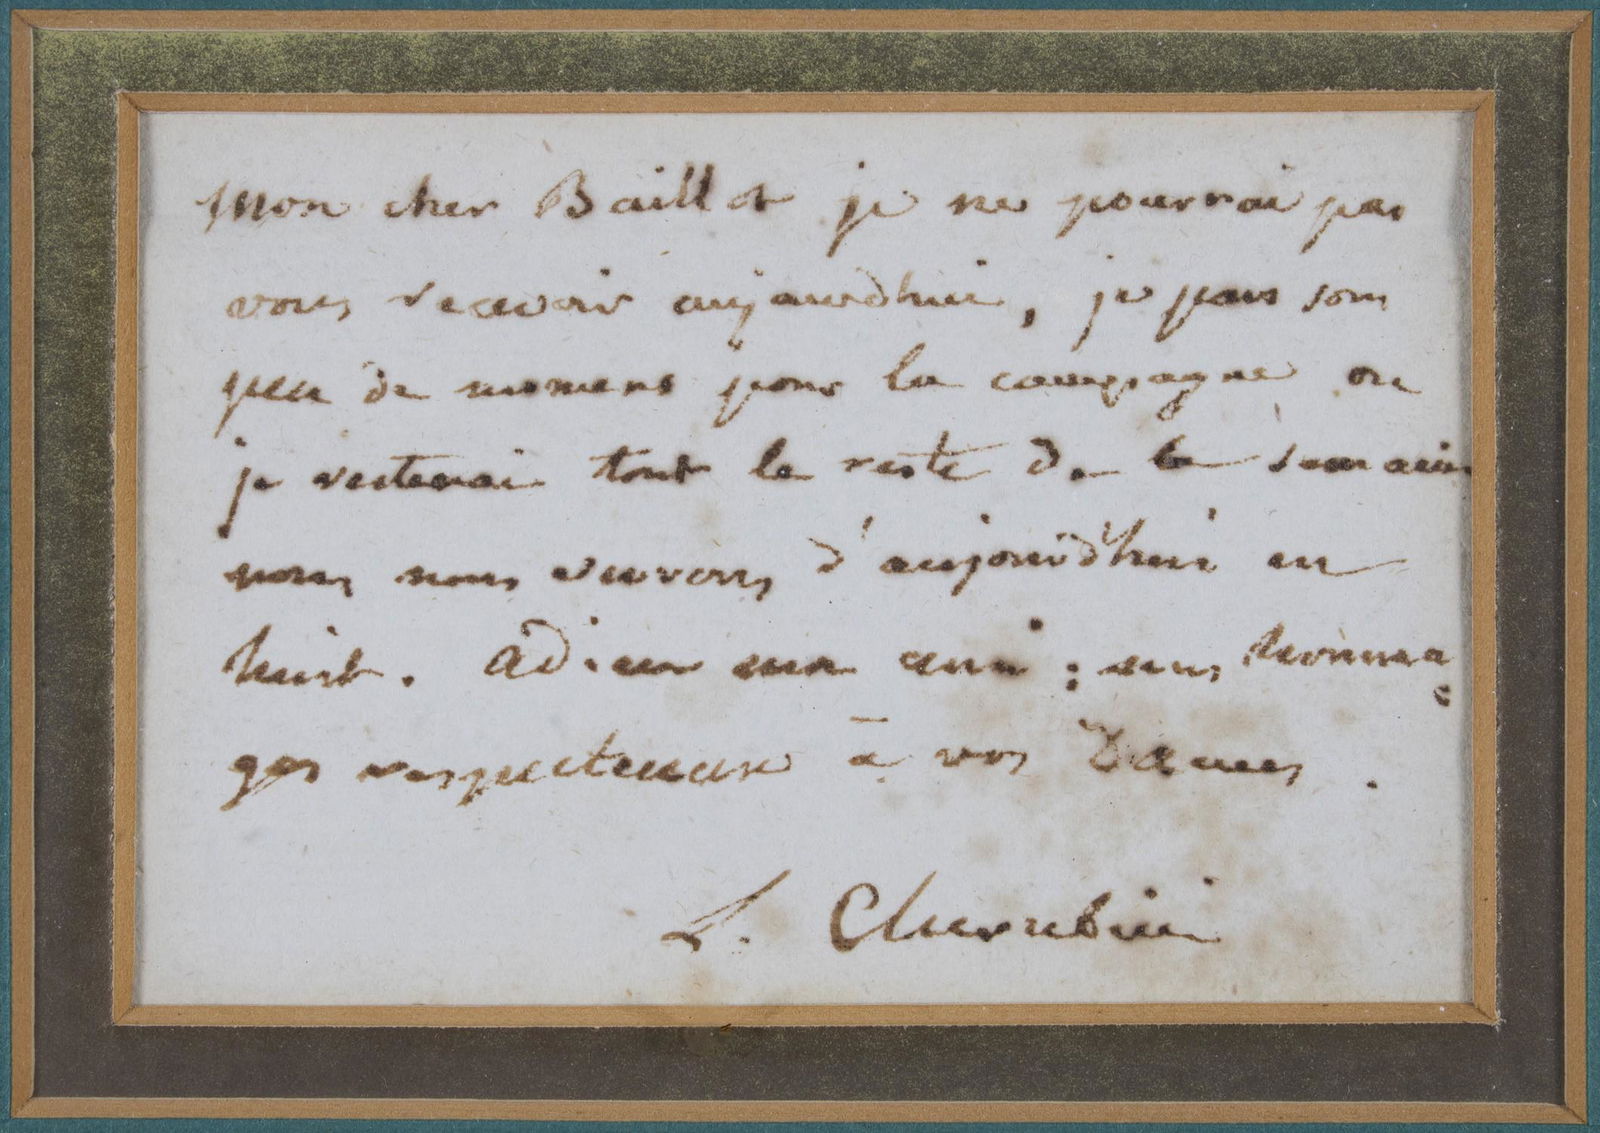 Mon cher Baillot je ne pourrai pas
vous recevoir aujourdhui, je pars sous
peu de momens pour la campagne ou
je resterai tout le reste de la semaine
nous nous verrons d'aujourd'hui en
huit. Adieu mon ami; mes homma
ges respectueux à vos Dames.
L. Cherubini